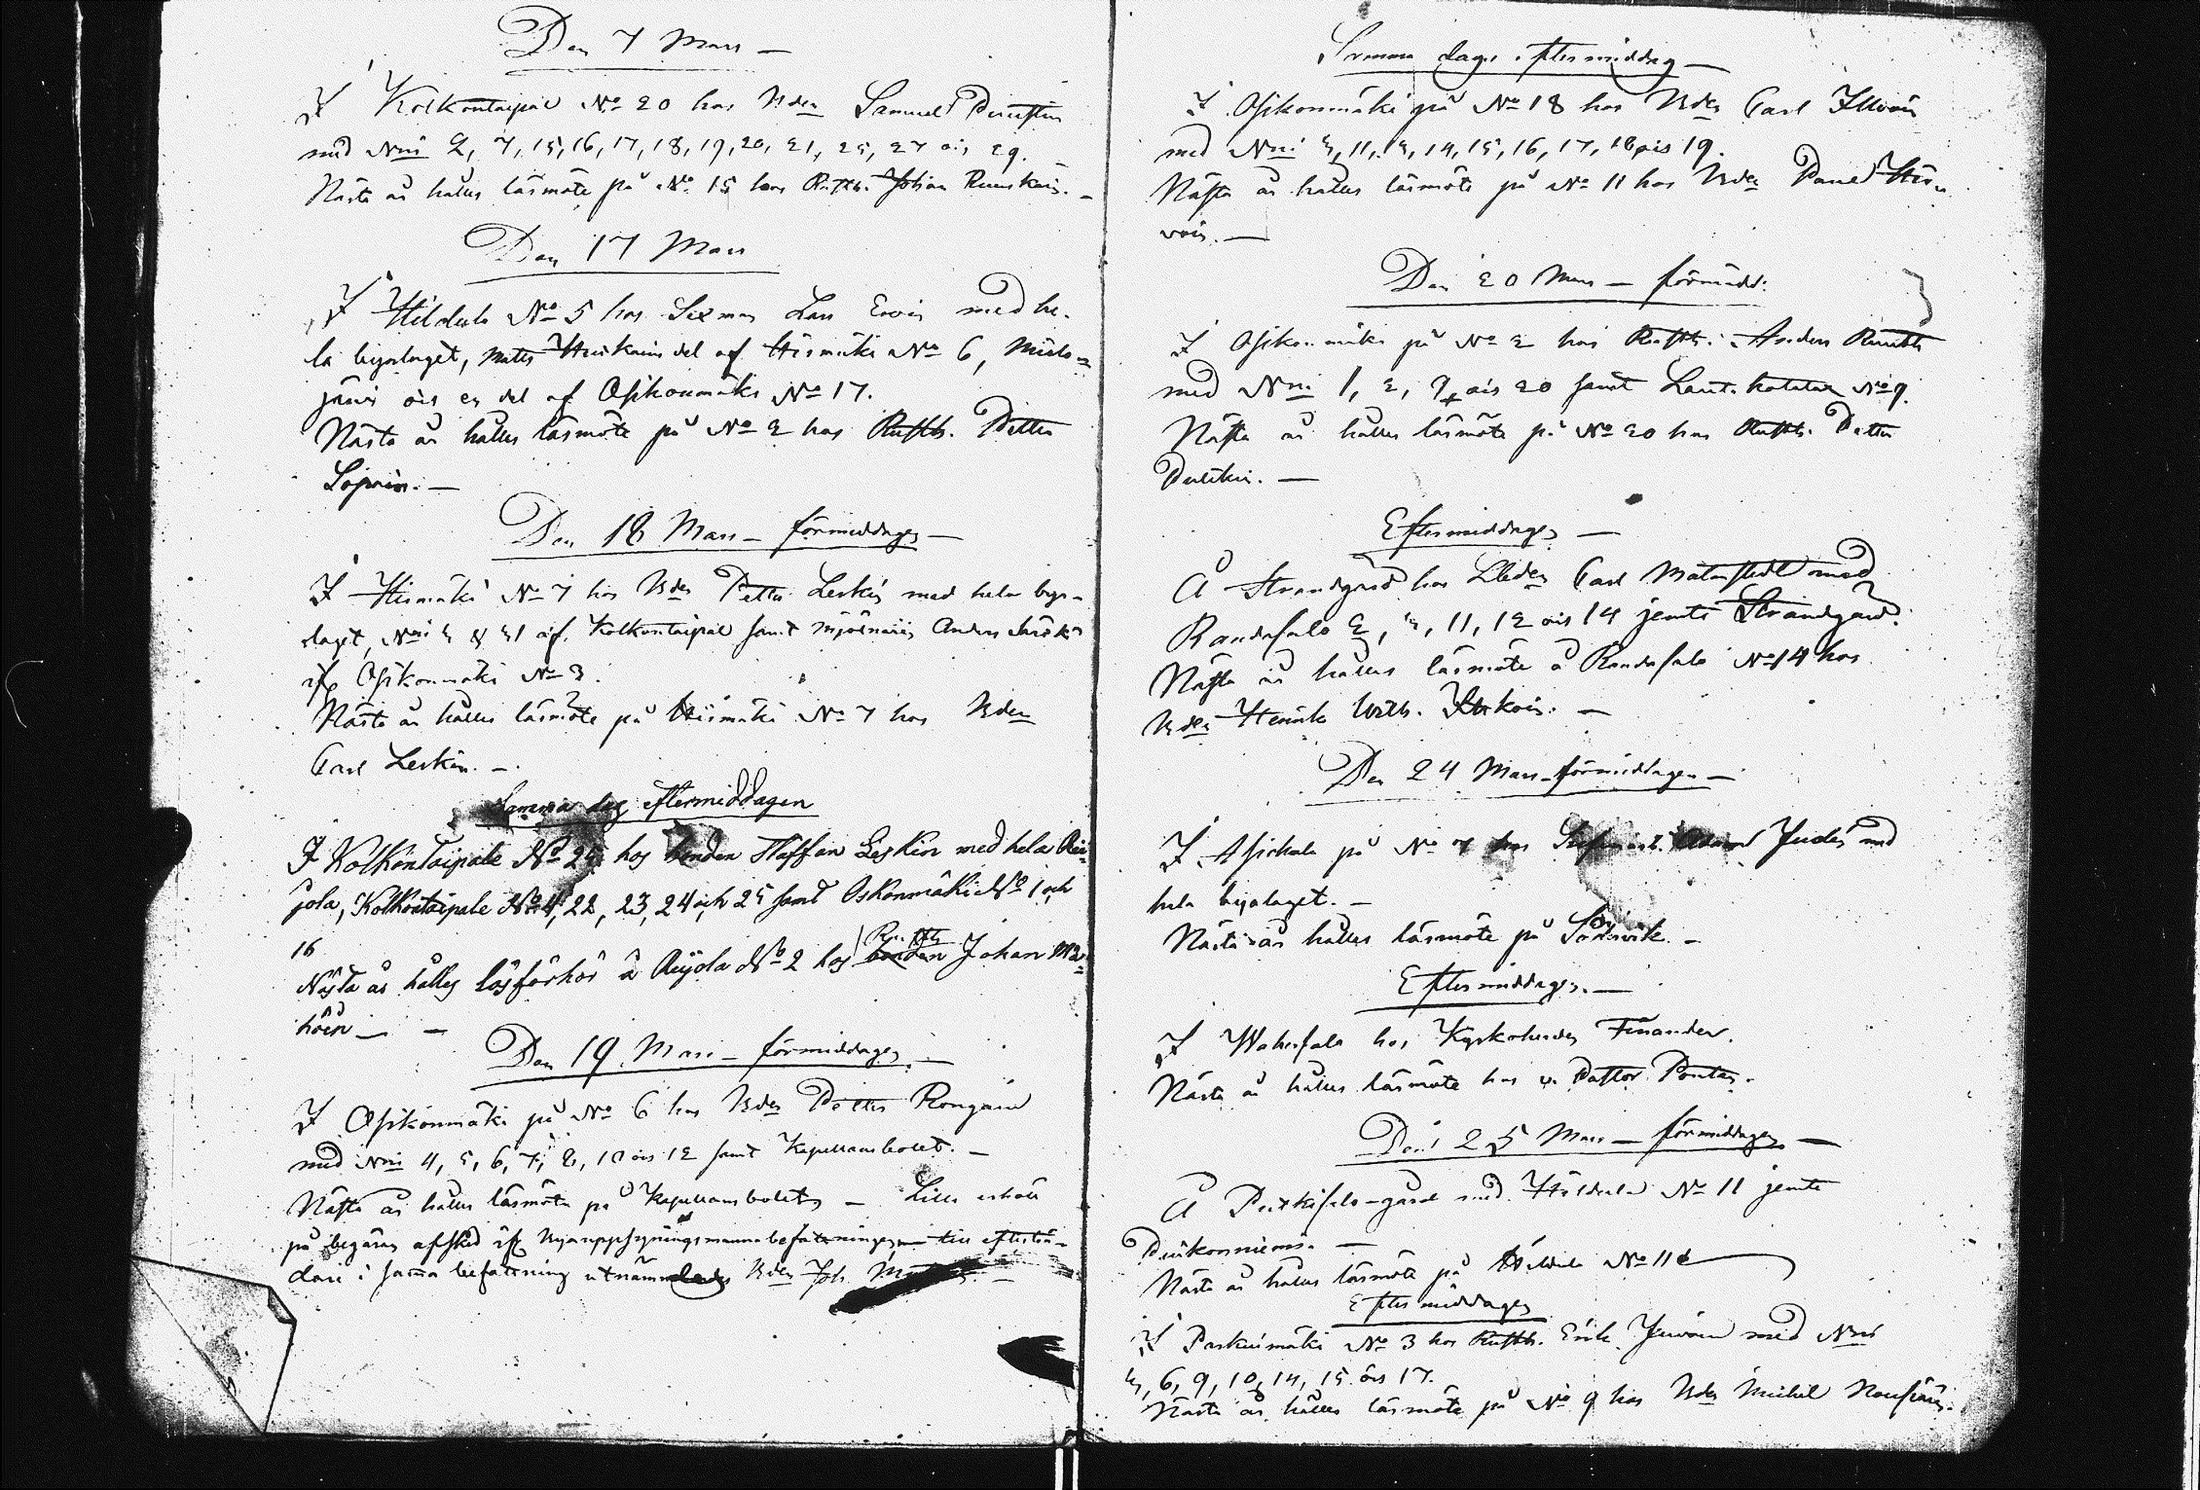 Den 7 Mars —
I Kolkontaipal No 20 hos Bden Samuel
med Nris 2, 7, 15, 16, 17, 18, 19, 20, 21, 25, 27 ois 29.
Nästa år hålles läsmöte på No 15 hos Rusth. Johan Ruuskain. —
Den 17 Mars
I Hildula No 5 hos Sexman Lars med he-
la byalaget, Matts del af Hismäki No 6,
järvi ois en del af Osikonmäki No 17.
Nästa år hålles läsmöte på No 2 hos Rusth. Petter
Loproin. —
Den 18 Mars — förmiddagen —
I Hismäki No 7 hos Bden Petter Leskin med hela bya-
laget, Nris af Kolkontaipal samt mjölnaren Anders
ifr Osikonmäki No 3.
Nästa år hålles läsmöte på Hiismäki No 7 hos Bden
Carl Leskin. —
Samma dag eftermiddagen
I Kolkontaipale No 24 hos bonden Staffan Leskin med hela Rei-
jola, Kolkontaipale No 4, 22, 23, 24 och 25 samt Oskonmäki No 1 och
16
Nästa år hålles läsförhör å Reijola No 2 hos Rusth. bonden Johan Mä-
höin — —
Den 19 Mars — förmiddagen. —
I Osikonmäki på No 6 hos Bden Petter Rongain
med Nris 4, 5, 6, 7, 8, 10 ois 12 samt Kapellansbolet. —
Nästa år hålles läsmöte på Kapellansbolet — erhöll
på begäran afsked ifr Byauppsyningsmanna befattningen till efterträ-
dare i samma befattning utnämndes Bden Joh.
Samma dags eftermiddag —
I Osikonmäki på No 18 hos Bden Carl
med Nris 3, 11, 13, 14, 15, 16, 17, 18 ois 19.
Nästa år hålles läsmöte på No 11 hos Bden Paul Hir-
voin. —
Den 20 Mars — förmidd.
I Osikonmäki på No 2 hos Rusth. Anders
med Nris 1, 2, ois 20 samt Lant. No 9.
Nästa år hålles läsmöte på No 20 hos Rusth. Petter
Eftermiddagen —
Å Strandgård hos Carl med
Randasalo 2, 3, 11, 12 ois 14 jemte Strandgård.
Nästa år hålles läsmöte å Randasalo No 14 hos
Bden Henrik Wilh. —
Den 24 Mars förmiddagen —
I Asickala på No 7 hos Adam med
hela byalaget. —
Nästa år hålles läsmöte på Södervik. —
Eftermiddagen. —
I Wahersalo hos Kyrkoherden Finander.
Nästa år hålles läsmöte hos v. Pastor Pontan.
Den 25 Mars — förmiddagen —
Å Putkisalo-gård med Hildula No 11 jemte
—
Nästa år hålles läsmöte på Hildula No 11
Eftermiddagen
I Paskuimäki No 3 hos Rusth. Erik med Nris
3, 6, 9, 10, 14, 15 ois 17.
Nästa år hålles läsmöte på No 9 hos Bden Michel Nousiain.